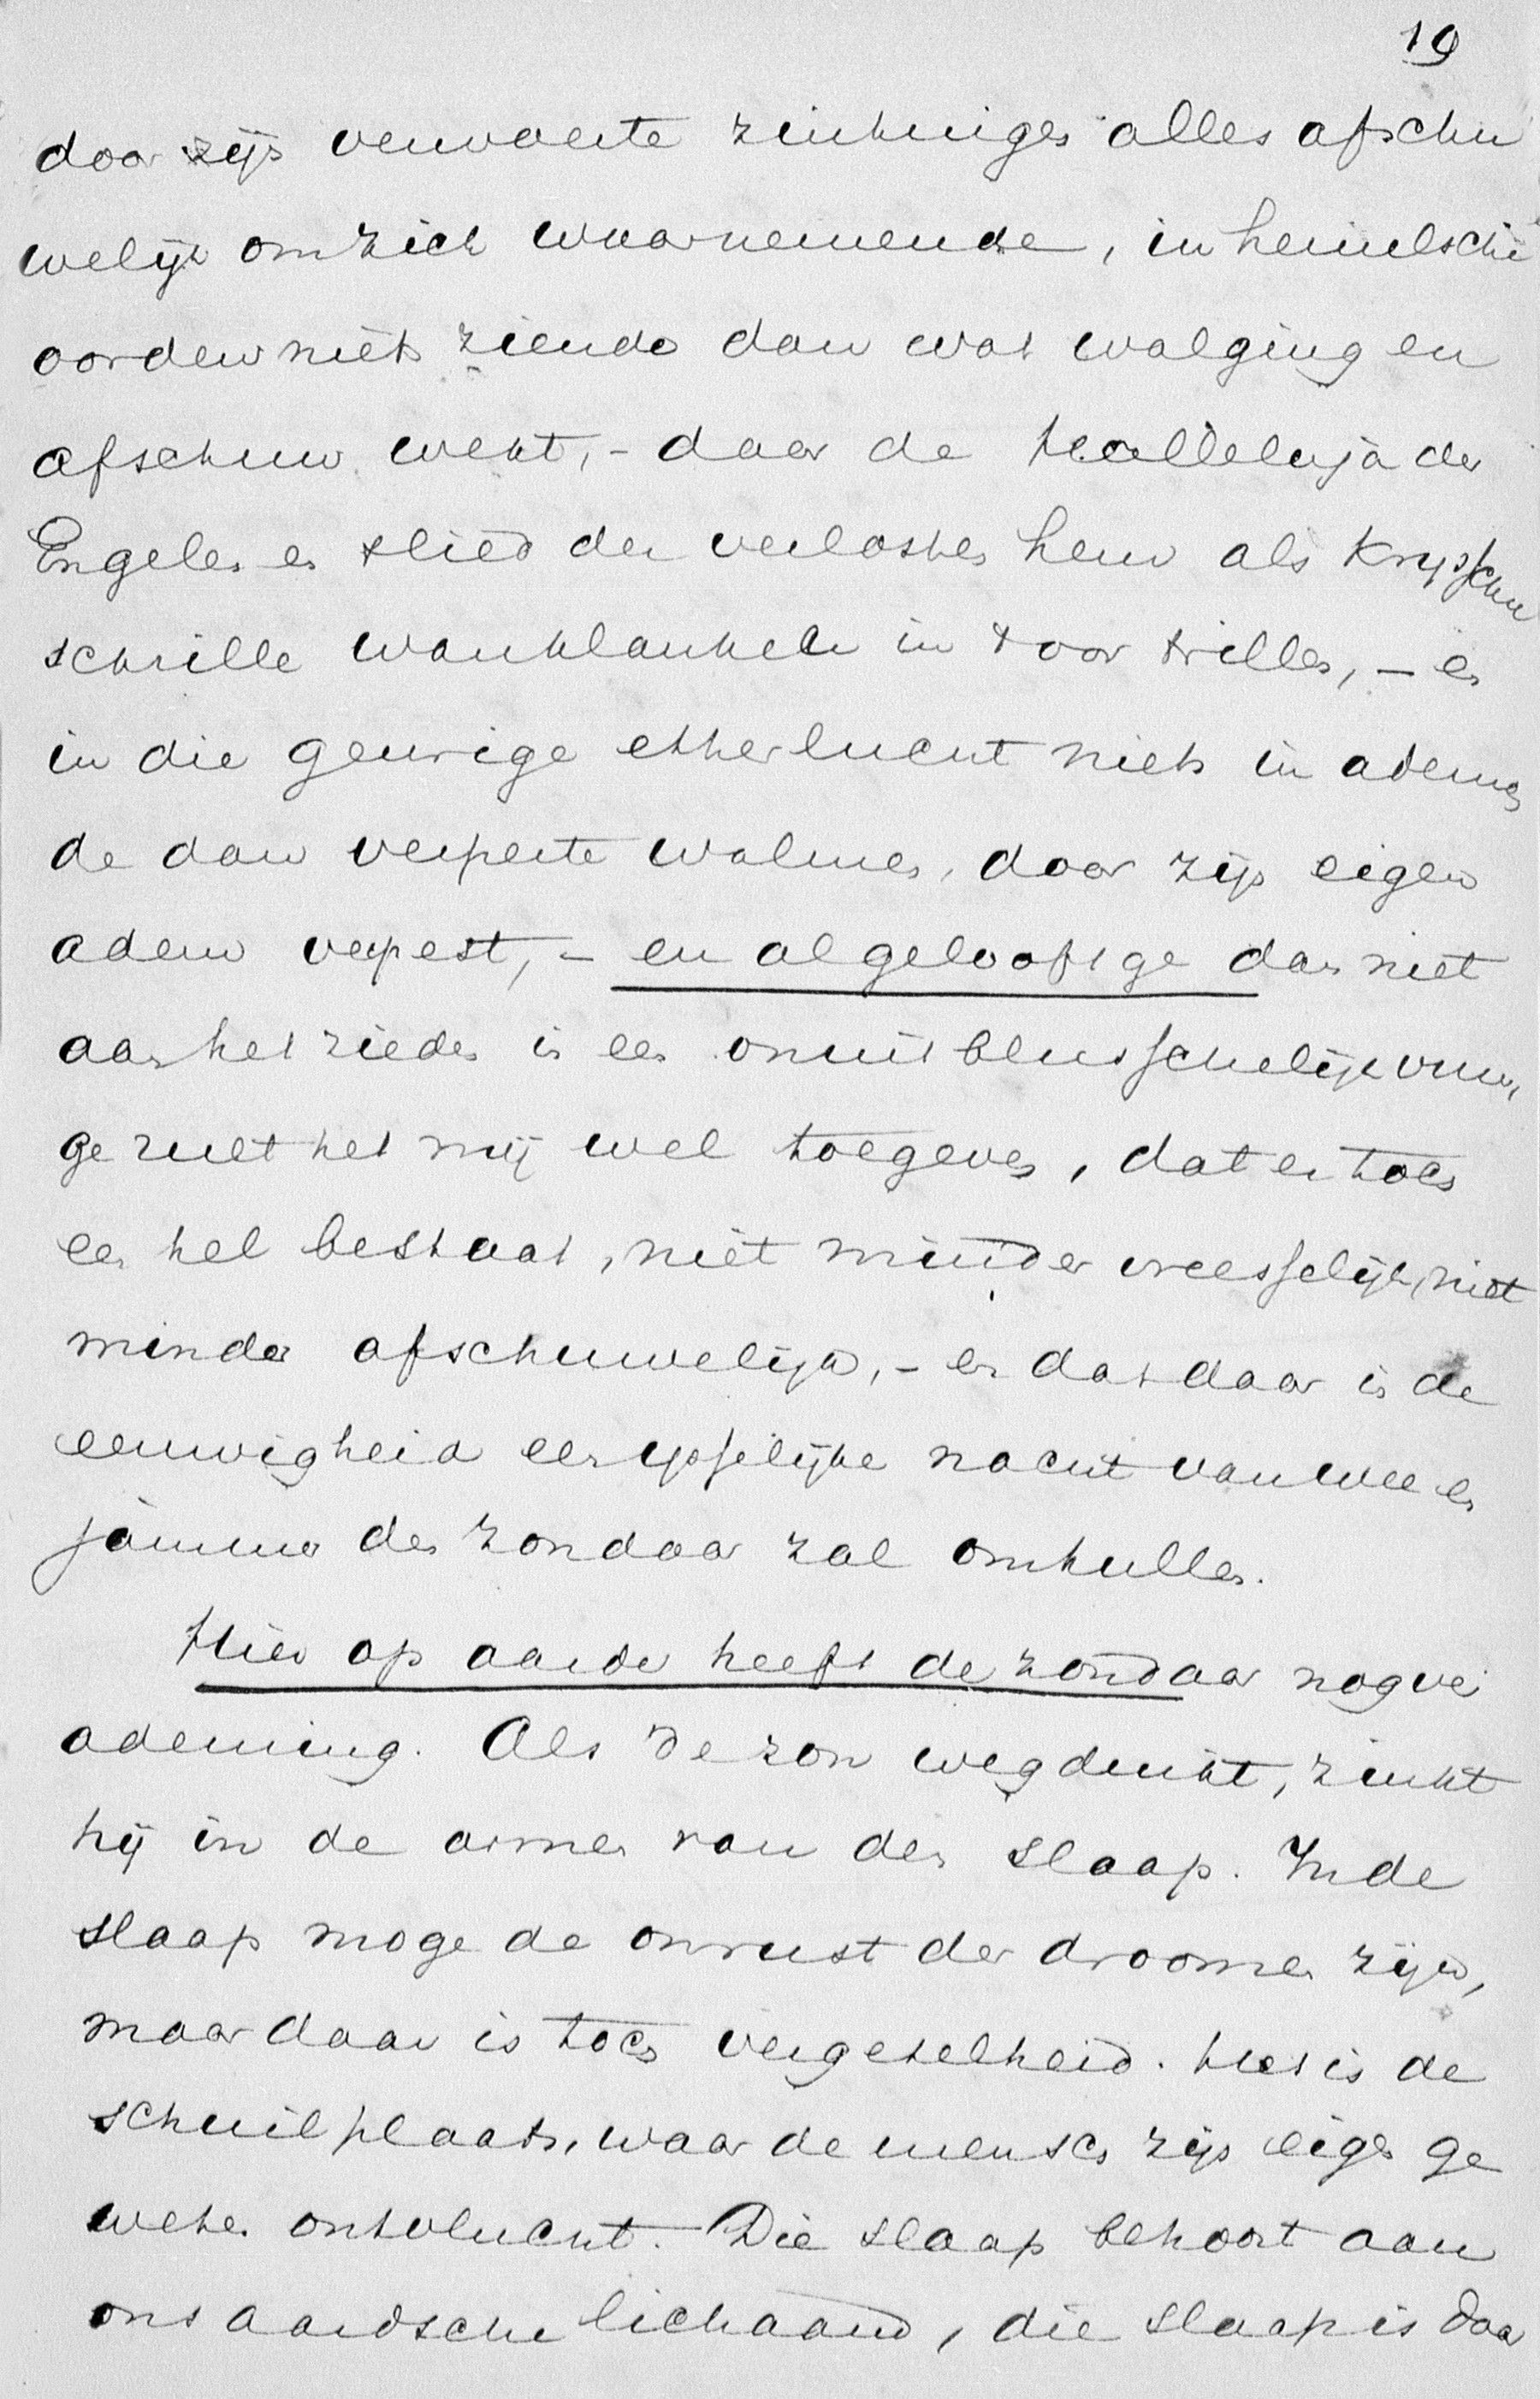 19
door zijn verwoeste zintuigen alles afschu
welijk om zich waarnemende, in hemelsche
oorden niets ziende dan wat walging en
afschuw wekt, - daar de Halleluja der
Engelen en 't lied der verlosten hem als krijschende
schrille wanklanken in 't oor trillen, - en
in die geurige etherlucht niets in ademen
de dan verpeste walmen, door zijn eigen
adem verpest, - en al gelooft ge dan niet
aan het zieden in een onuitblusschelijk vuur,
ge zult het mij wel toegeven, dat er toch
een hel bestaat, niet minder vreesselijk, niet
minder afschuwelijk, - en dat daar in de
eeuwigheid een ijselijke nacht van wee en
jammer den zondaar zal omhullen.
Hier op aarde heeft de zondaar nog ver
ademing. Als de zon wegduikt, zinkt
hij in de armen van den slaap. In de
slaap moge de onrust der droomen zijn,
maar daar is toch vergetelheid. Het is de
schuilplaats, waar de mensch zijn eigen ge
weten ontvlucht. Die slaap behoort aan
ons aardsche lichaam, die slaap is daar